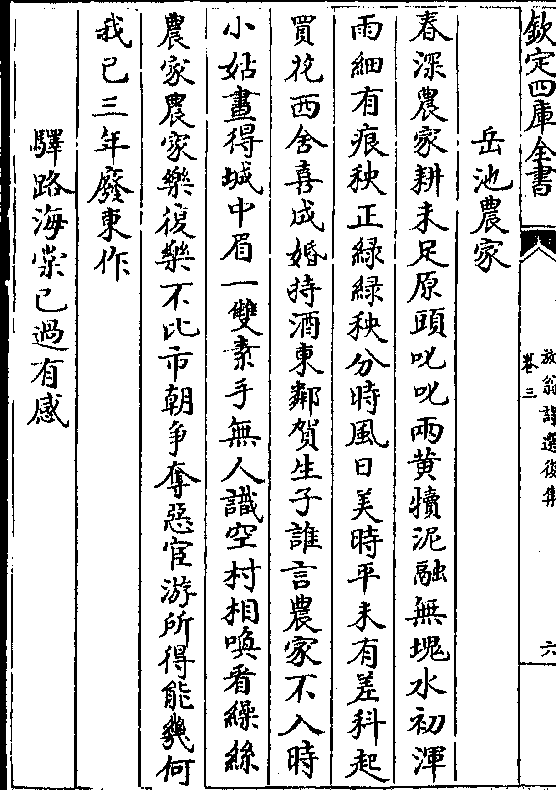 欽定四庫全書
放翁詩選後集
卷三
六
岳池農家
春深農家耕未足原頭叱叱兩黄犢泥融無塊水初渾
雨細有痕秧正緑緑秧分時風日美時平未有差科起
買花西舍喜成婚持酒東鄰賀生子誰言農家不入時
小姑畫得城中眉一雙素手無人識空村相喚看繰絲
農家農家樂復樂不比市朝爭奪惡宦游所得能幾何
我已三年廢東作
驛路海棠已過有感